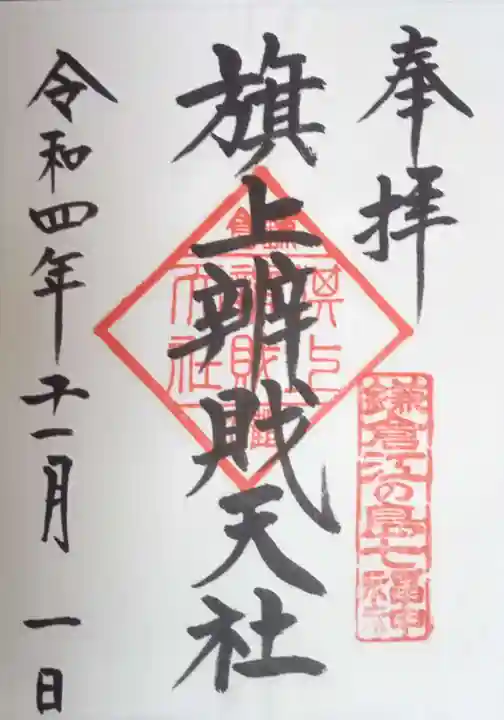 奉拝
鎌倉江の島七福神
旗上辨財天社
令和四年十一月 一日